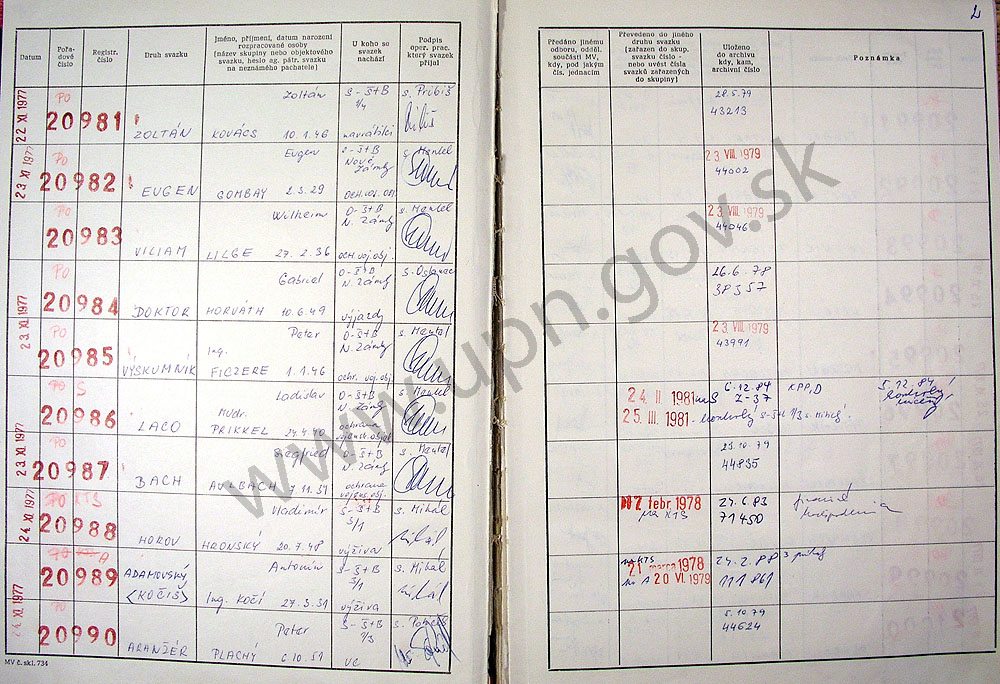 L
Datum
Pořadové číslo
Registr. číslo
Druh svazku
Jméno, příjmení, datum narození rozpracované osoby (název skupiny nebo objektového svazku, heslo ag. pátr. svazku na neznámého pachatele)
U koho se svazek nachází
Podpis oper. prac. který svazek přijal
Předáno jinému odboru, odděl. součásti MV, kdy, pod jakým čís. jednacím
Převedeno do jiného druhu svazku (zařazen do skup. svazku číslo - nebo uvést čísla svazků zařazených do skupiny)
Uloženo do archivu kdy, kam, archivní číslo
Poznámka
22 XI 1977
PO
20981
ZOLTÁN
Zoltán
KOVÁCS 10.1.46
S-ŠtB
s. Pribiš
28.5.79
43213
23 XI 1977
PO
20982
EUGEN
Eugen
GOMBAY 2.3.29
S-ŠtB
Nové Zámky
s. Mentel
23 VIII. 1979
44002
PO
20983
VILIAM
Wilheim
LILGE 27.2.36
O-ŠtB
N. Zámky
och voj. obj.
s. Mentel
23 VIII. 1979
44046
PO
20984
DOKTOR
Gabriel
HORVÁTH 10.6.49
O-ŠtB
N. Zámky
výjazdy
26.6.78
38357
23 XI 1977
PO
20985
VÝSKUMNÍK
Peter
Ing.
FICZERE 1.1.46
O-ŠtB
N. Zámky
ochr. voj. obj
s. Mentel
23 VIII. 1979
43991
PO S
20986
LACO
Ladislav
MUDr.
PRIKKEL 27.4.40
O-ŠtB
N. Zámky
ochrana
s. Mentel
24 II 1981
25. III 1981
6.12.84
Z-37
KPP,D
5.12.84
23 XI 1977
PO
20987
BACH
Siegfried
AULBACH 7.11.39
O-ŠtB
N. Zámky
ochrana
s. Mentel
23.10.79
44835
24. XI 1977
PO KTS
20988
HOROV
Vladimír
HRONSKÝ 20.7.48
S-ŠtB
3/1
výživa
s. Mihál
febr 1978
na KTS
27.6.83
71450
A
20989
ADAMOVSKÝ
(KOČIŠ)
Antonín
Ing. KOČÍ 27.3.31
S-ŠtB
3/1
výživa
s. Mihál
na KTS
21 marca 1978
na A 20 VI. 1979
24.2.88
111861
24 XI 1977
PO
20990
ARANŽÉR
Peter
PLACHÝ 6.10.51
S-ŠtB
VC
5.10.79
44624
MV č. skl. 734
www.upn.gov.sk